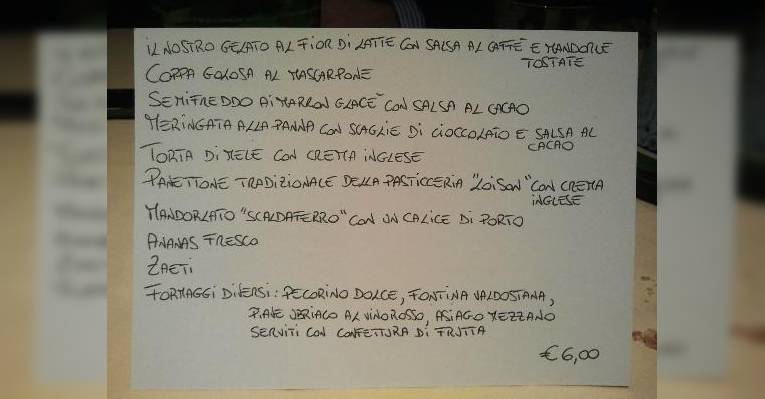 IL NOSTRO GELATO AL FIOR DI LATTE CON SALSA AL CAFFÈ E MANDORLE
TOSTATE
COPPA GOLOSA AL MASCARPONE
SEMIFREDDO AI MARRON GLACÈ CON SALSA AL CACAO
MERINGATA ALLA PANNA CON SCAGLIE DI CIOCCOLATO E SALSA AL
CACAO
TORTA DI MELE CON CREMA INGLESE
PANETTONE TRADIZIONALE DELLA PASTICCERIA "LOISON" CON CREMA
INGLESE
MANDORLATO "SCALDAFERRO" CON UN CALICE DI PORTO
ANANAS FRESCO
ZAETI
FORMAGGI DIVERSI: PECORINO DOLCE, FONTINA VALDOSTANA,
PIAVE UBRIACO AL VINO ROSSO, ASIAGO MEZZANO
SERVITI CON CONFETTURA DI FRUTTA
€ 6,00